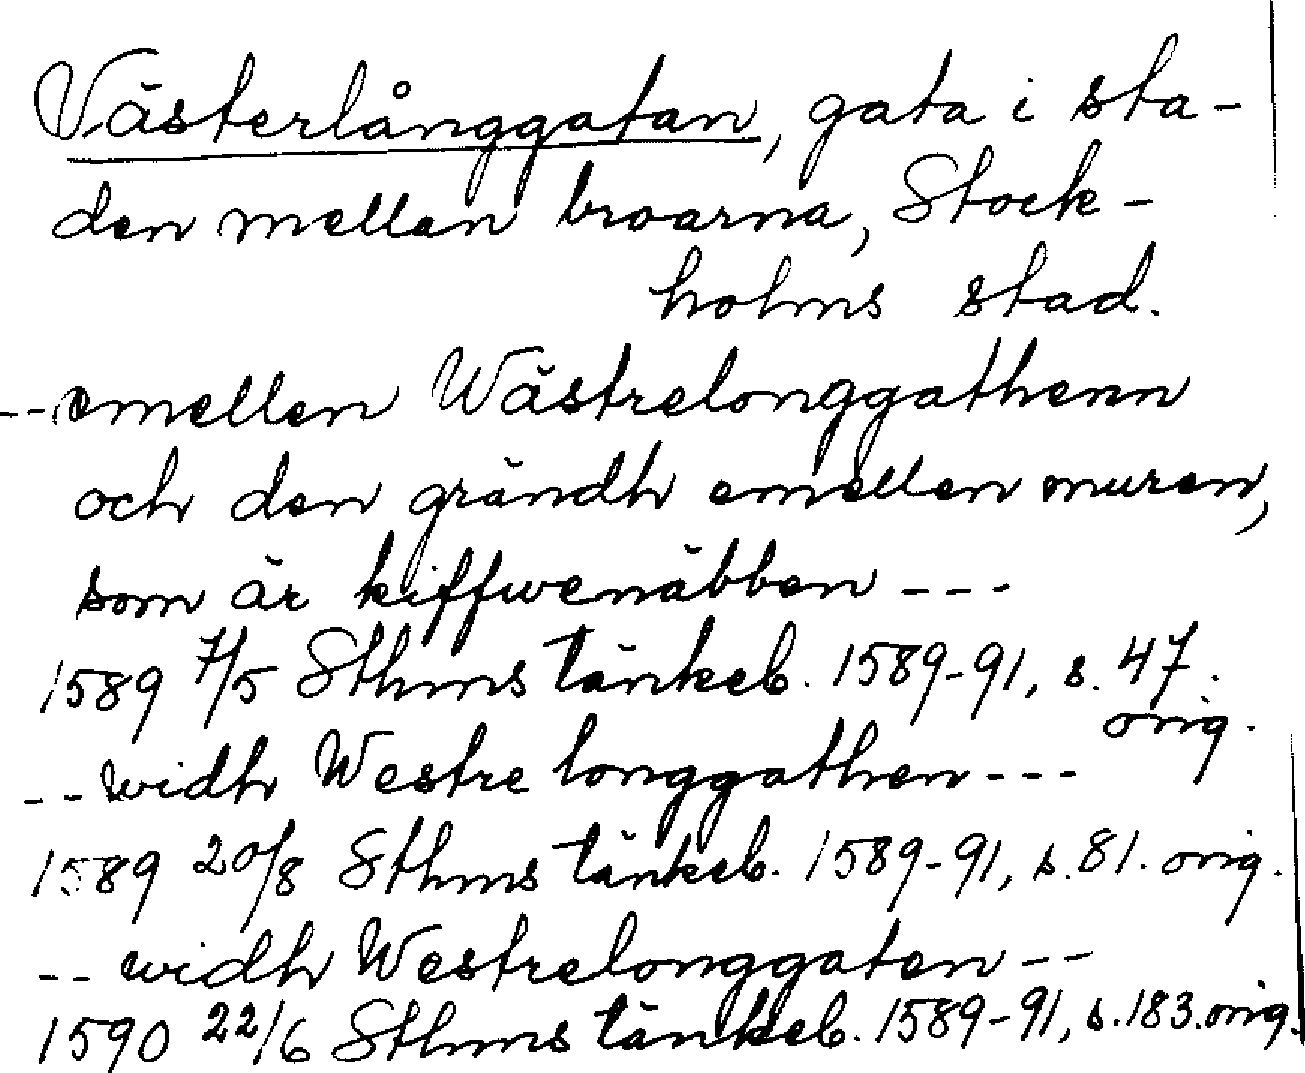 Västerlånggatan, gata i sta-
den mellan broarna, Stock-
holms stad.
--emellen Wästrelonggathenn
och den grändh emellen muren,
som är kiffwenäbben ---
1589 7/5 Sthms tänkeb. 1589-91, s. 47.
orig.
--widh Westre longgathen---
1589 20/8 Sthms tänkeb. 1589-91, s. 81. orig.
-- widh Westrelonggaten --
1590 22/6 Sthms tänkeb. 1589-91, s. 183. orig.